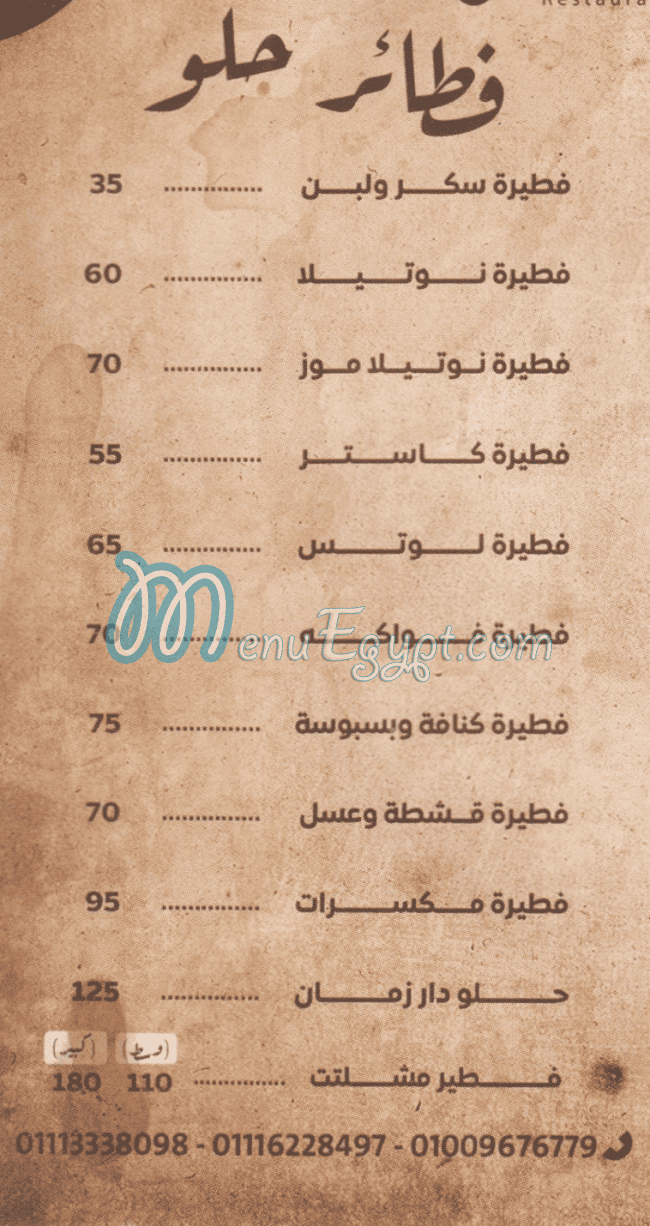 Restaura
فطائر حلو
فطيرة سكر ولبن ............... 35
فطيرة نوتيلا ............... 60
فطيرة نوتيلا موز ............... 70
فطيرة كاستر ............... 55
فطيرة لوتس ............... 65
فطيرة فواكه ............... 70
MenuEgypt.com
فطيرة كنافة وبسبوسة ............... 75
فطيرة قشطة وعسل ............... 70
فطيرة مكسرات ............... 95
حلو دار زمان ............... 125
(وسط) (كبير)
فطير مشلتت .............. 110 180
01113338098 - 01116228497 - 01009676779